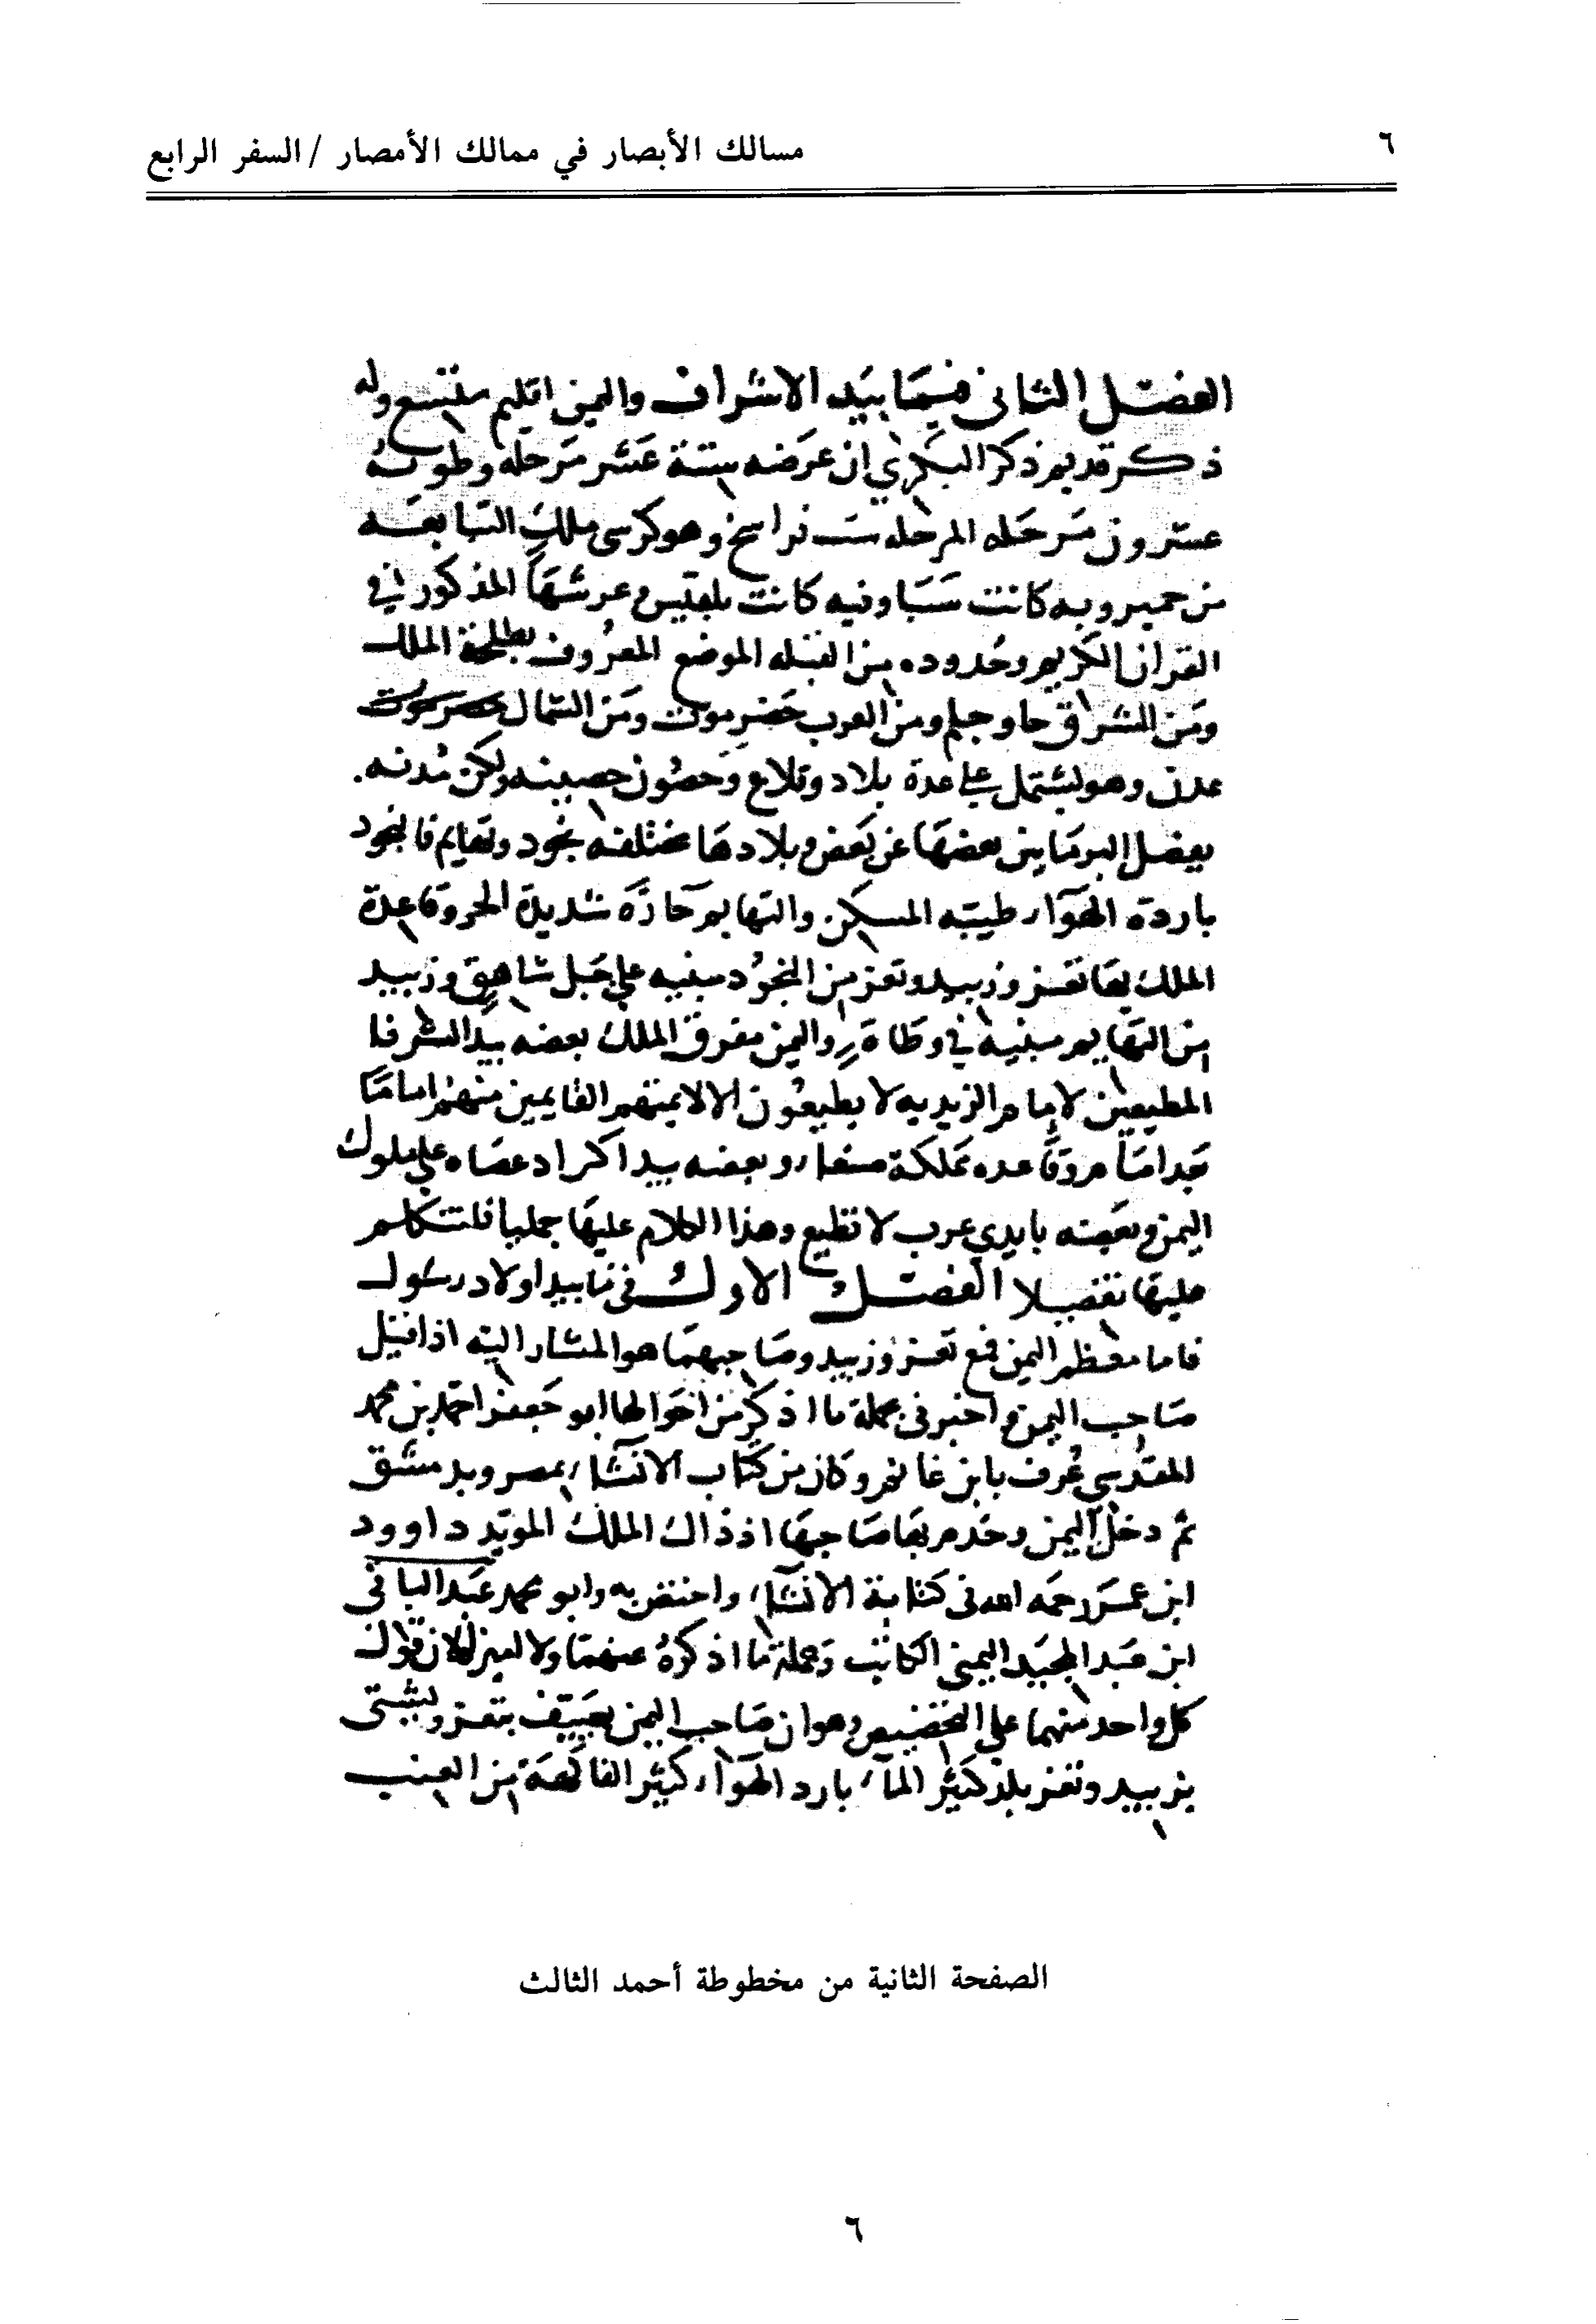 ٦
مسالك الأبصار في ممالك الأمصار / السفر الرابع
الفصل الثاني فيما بيد الاشراف واليمن اقليم متسع وله
ذكر قديم ذكر البكري ان عرضه ستة عشر مرحله وطوله
عشرون مرحله المرحله ست فراسخ وهو كرسي ملك التبابعه
من حمير وبه كانت سبا وفيه كانت بلقيس وعرشها المذكور في
القران الكريم وحدوده من القبله الموضع المعروف بطلحة الملك
ومن الشرق حا وجلم ومن الغرب حضرموت ومن الشمال
عدن وهو يشتمل على عدة بلاد وقلاع وحصون حصينه ولكن مدنه
يفصل البر ما بين بعضها عن بعض وبلادها مختلفه نجود وتهايم فالنجود
باردة الهوآء طيبه المسكن والتهايم حارة شديدة الحر وقاعدة
الملك بها تعز وزبيد وتعز من النجود مبنيه على جبل شاهق وزبيد
من التهايم مبنيه في وطاة واليمن مفرق الملك بعضه بيد الشرفا
المطيعين لامام الزيديه لا يطيعون الا لايمتهم القايمين منهم اماما
بعد امام وقاعده مملكة صنعاء وبعضه بيد اكراد عصاه على ملوك
اليمن وبعضه بايدي عرب لا تطيع وهذا الكلام عليها جمليا فلنتكلم
عليها تفصيلا الفصل الاول في ما بيد اولاد رسول
فاما معظم اليمن فمع تعز وزبيد وصاحبهما هو المشار اليه اذا قيل
صاحب اليمن واخبرني بجملة ما اذكر من احوالها ابو جعفر احمد بن محمد
المقدسي عرف بابن غانم وكان من كتاب الانشآء بمصر وبدمشق
ثم دخل اليمن وخدم بها صاحبها اذ ذاك الملك المويد داوود
ابن عمر رحمه الله في كتابة الانشآء واختص به وابو محمد عبد الباقي
ابن عبد المجيد اليمني الكاتب وجملة ما اذكره عنهما ولا اميز قول
كل واحد منهما على التخصيص وهو ان صاحب اليمن يصيف بتعز ويشتي
بزبيد وتعز بلد كثير المآء بارد الهوآء كثير الفاكهة من العنب
الصفحة الثانية من مخطوطة أحمد الثالث
٦